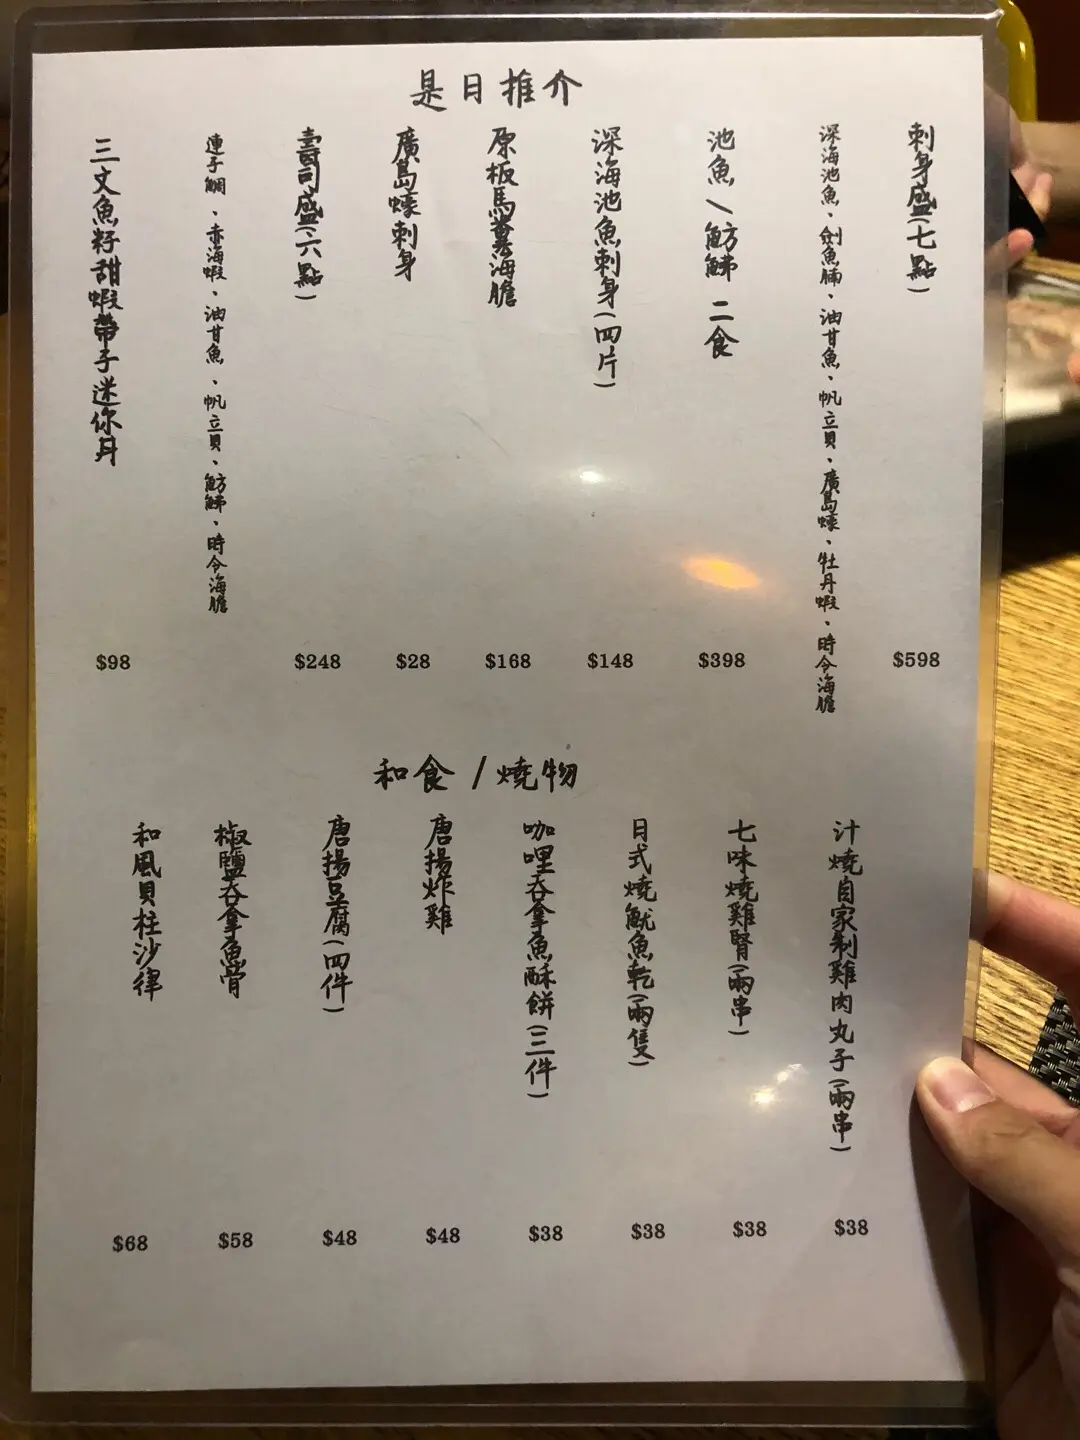 是日推介
刺身盛(七點)
$598
深海池魚、劍魚腩、油甘魚、帆立貝、廣島蠔、牡丹蝦、時令海膽
池魚\魴鮄 二食
$398
深海池魚刺身(四片)
$148
原板馬糞海膽
$168
廣島蠔刺身
$28
壽司盛(六點)
$248
連子鯛、赤海蝦、油甘魚、帆立貝、魴鮄、時令海膽
三文魚籽甜蝦帶子迷你丼
$98
和食/燒物
汁燒自家制雞肉丸子(兩串)
$38
七味燒雞腎(兩串)
$38
日式燒魷魚乾(兩隻)
$38
咖哩吞拿魚酥餅(三件)
$38
唐揚炸雞
$48
唐揚豆腐(四件)
$48
椒鹽吞拿魚骨
$58
和風貝柱沙律
$68